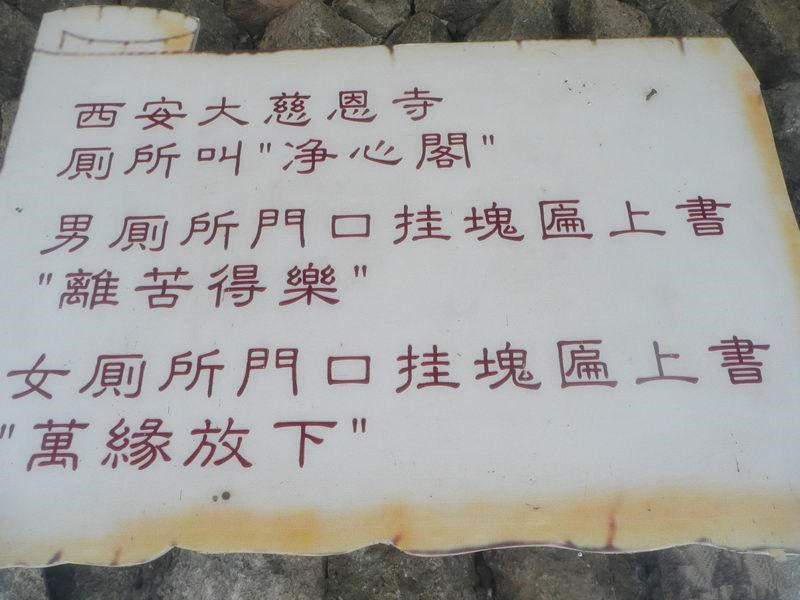 西安大慈恩寺
厠所叫"净心閣"
男厠所門口挂塊匾上書
"離苦得樂"
女厠所門口挂塊匾上書
"萬緣放下"